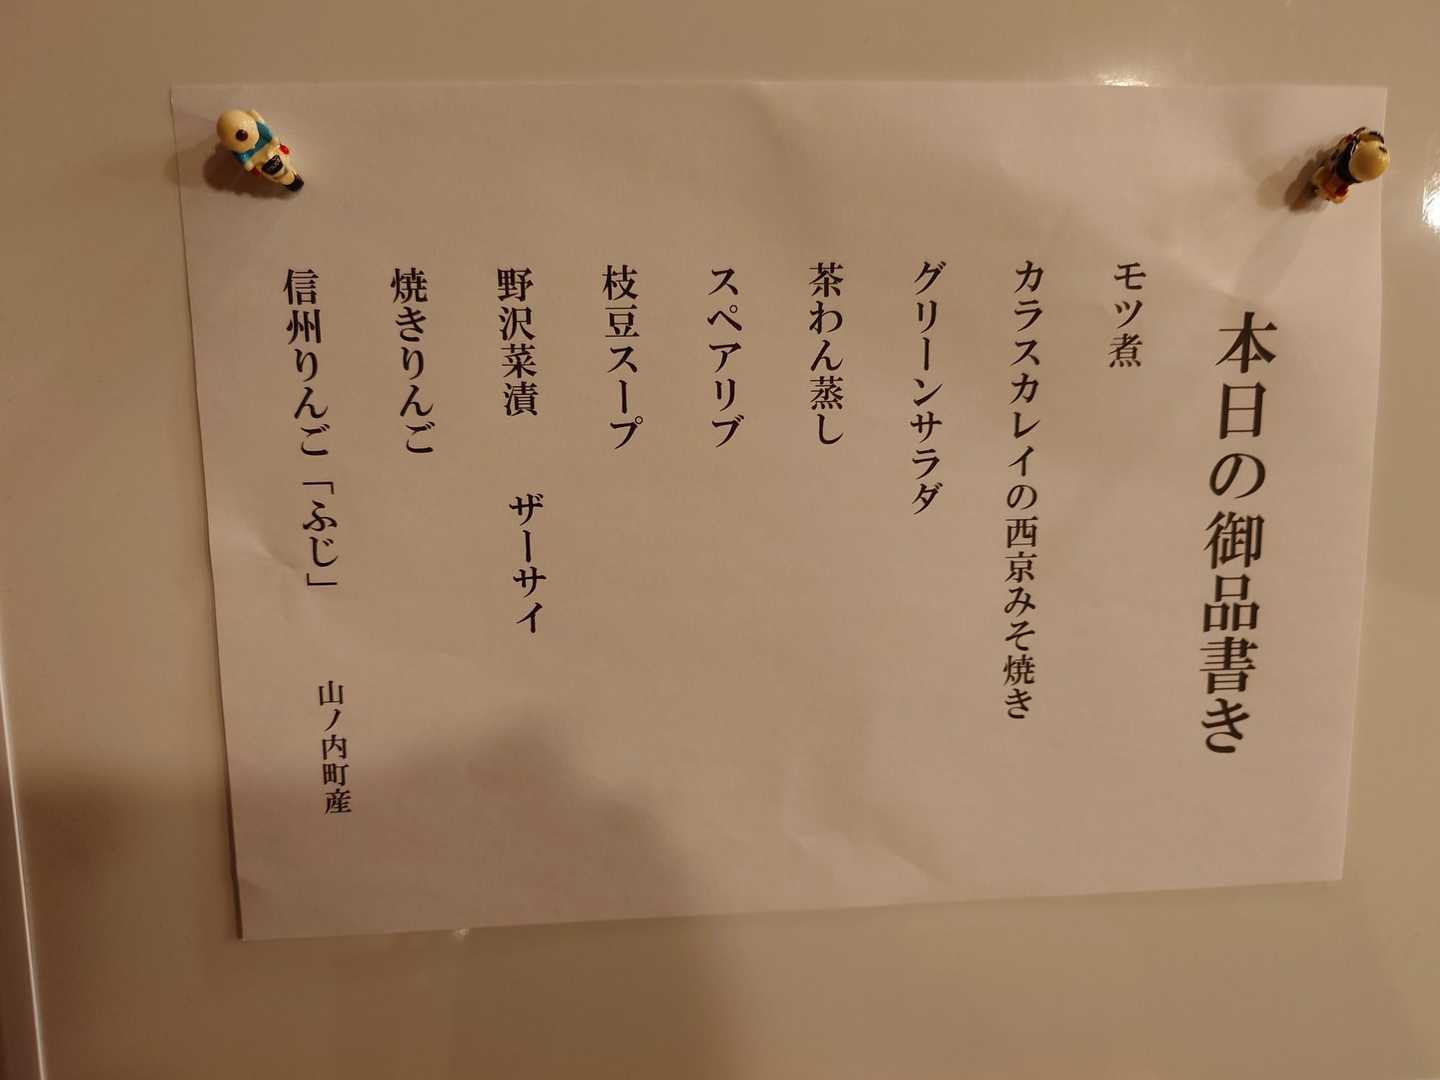 本日の御品書き
モツ煮
カラスカレイの西京みそ焼き
グリーンサラダ
茶わん蒸し
スペアリブ
枝豆スープ
野沢菜漬　ザーサイ
焼きりんご
信州りんご「ふじ」　山ノ内町産